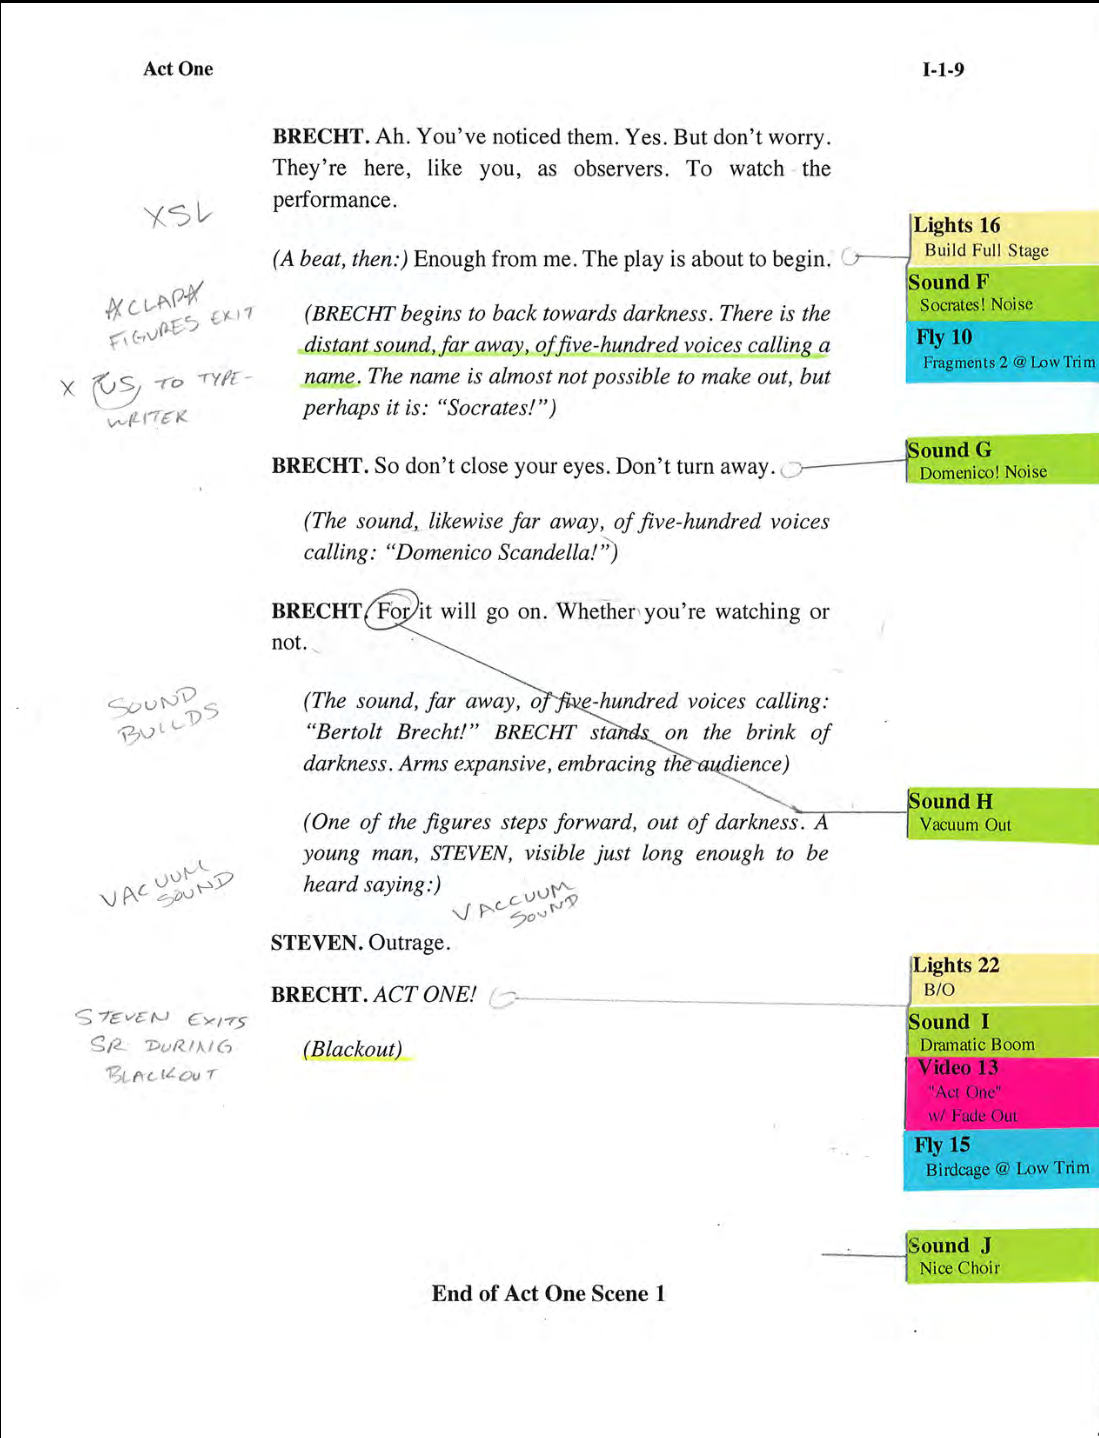 Act One
I-1-9
BRECHT. Ah. You've noticed them. Yes. But don't worry.
They're here, like you, as observers. To watch the
performance.
XSL
Lights 16
Build Full Stage
(A beat, then:) Enough from me. The play is about to begin.
Sound F
Socrates! Noise
Fly 10
Fragments 2 @ Low Trim
FIGURES EXIT
(BRECHT begins to back towards darkness. There is the
distant sound, far away, of five-hundred voices calling a
name. The name is almost not possible to make out, but
perhaps it is: "Socrates!")
X US, TO TYPE-
WRITER
BRECHT. So don't close your eyes. Don't turn away.
Sound G
Domenico! Noise
(The sound, likewise far away, of five-hundred voices
calling: "Domenico Scandella!")
BRECHT. For it will go on. Whether you're watching or
not.
SOUND
BUILDS
(The sound, far away, of five-hundred voices calling:
"Bertolt Brecht!" BRECHT stands on the brink of
darkness. Arms expansive, embracing the audience)
Sound H
Vacuum Out
(One of the figures steps forward, out of darkness. A
young man, STEVEN, visible just long enough to be
heard saying:)
VACUUM
SOUND
VACCUUM
SOUND
STEVEN. Outrage.
BRECHT. ACT ONE!
Lights 22
B/O
Sound I
Dramatic Boom
Video 13
"Act One"
w/ Fade Out
Fly 15
Birdcage @ Low Trim
STEVEN EXITS
SR DURING
BLACKOUT
(Blackout)
Sound J
Nice Choir
End of Act One Scene 1